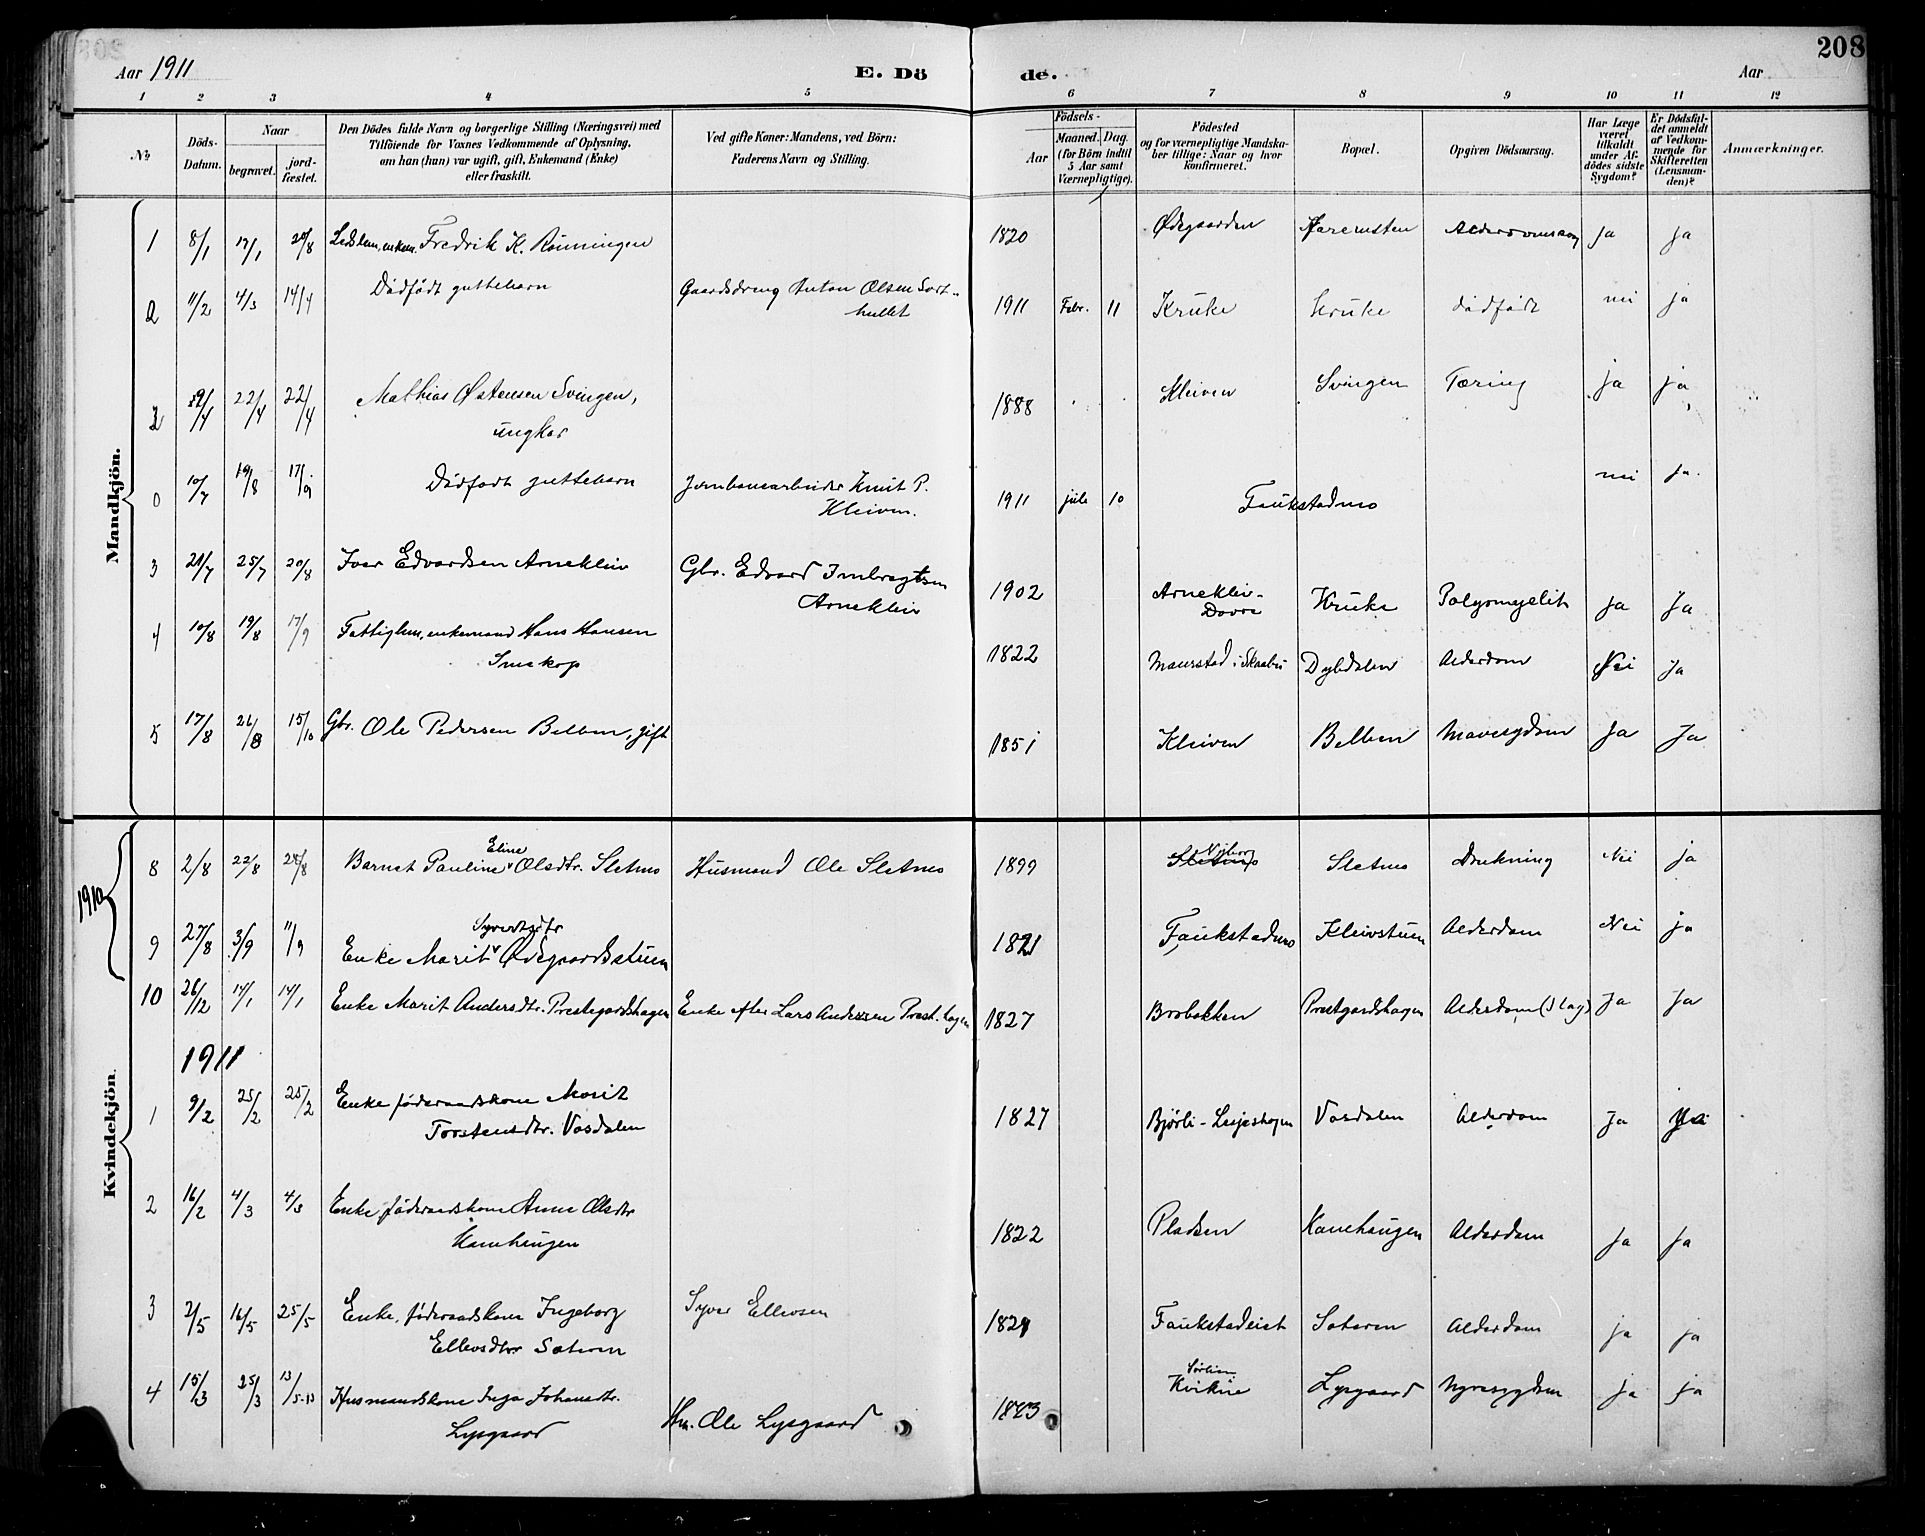 208
Aar 1911 E. Dö de. Aar
1 2 3 4 5 6 7 8 9 10 11 12
No. Döds-Datum. Naar begravet. jord-fæstet. Den Dödes fulde Navn og borgerlige Stilling (Næringsvei) med Tilföiende for Voxnes Vedkommende af Oplysning, om han (hun) var ugift, gift, Enkemand (Enke) eller fraskilt. Ved gifte Koner: Mandens, ved Börn: Faderens Navn og Stilling. Födsels- Aar Maaned. Dag. (for Börn indtil 5 Aar samt Værnepligtige). Födested og for værnepligtige Mandska-ber tillige: Naar og hvor konfirmeret. Bopæl. Opgiven Dödsaarsag. Har Læge været tilkaldt under Af-dödes sidste Sygdom? Er Dödsfal-det anmeldt af Vedkom-mende for Skifteretten (Lensman-den)? Anmærkninger.
Mandkjön.
1 8/1 17/1 20/8 Fredrik K. Rönningen 1820 Ødegaarden ja ja
2 11/2 4/3 14/4 Dödfödt guttebarn Gaardsdreng Anton Olsen Sort-
hullet 1911 Febr. 11 Kruke Kruke dödfödt nei ja
2 19/4 22/4 22/4 Mathias Østensen Svingen,
ungkar 1888 Kleiven Svingen Tæring ja ja
0 10/7 19/8 17/9 Dödfödt guttebarn Jernbanearbeider Knut P.
Kleiven. 1911 juli 10 Faukstadmo nei ja
3 21/7 25/7 20/8 Ivar Edvardsen Arneklein Gbr. Edvard Imbregtsen
Arneklein 1902 Arneklei-
Dovre Kruke Polyomyelit ja Ja
4 10/8 19/8 17/9 Fattiglem, enkemand Hans Hansen
Smekop 1822 Maurstad i Skaabu Dybdalen Alderdom Nei Ja
5 17/8 26/8 15/10 Gbr. Ole Pedersen Bellum, gift 1851 Kleiven Bellum Mavesygdom Ja Ja
Kvindekjön.
1910
8 2/8 22/8 28/8 Barnet Pauline Eline Olsdtr. Sletmo Husmand Ole Sletmo 1899 Sletmo Sletmo Drukning Nei ja
9 27/8 3/9 11/9 Enke Marit Syvertsdtr Ødegaardsstuen 1821 Faukstadmo Kleivstuen Alderdom Nei ja
10 26/12 14/1 14/1 Enke Marit Andersdtr. Prestegardshagen Enke efter Lars Andersen Prest.hagen 1827 Brobakken Prestgardshagen Alderdom (Slag) Ja Ja
1911
1 9/2 25/2 25/2 Enke föderaadskone Marit
Torstensdtr. Vasdalen 1827 Bjørli - Lesjeskogen Vasdalen Alderdom Ja
2 16/2 4/3 4/3 Enke, föderaadskone Anne Olsdtr
Kamhaugen 1822 Pladsen Kamhaugen Alderdom Ja Ja
3 2/5 16/5 25/5 Enke, föderaadskone Ingeborg
Ellevsdtr Sateren Syver Ellevsen 1829 Faukstadeiet Sateren Alderdom ja ja
4 15/3 25/3 13/5-13 Husmandskone Inga Johansdtr.
Lysgaard Hm. Ole Lysgaard 1843 Kvikne Lysgaard Nyresygdom ja ja